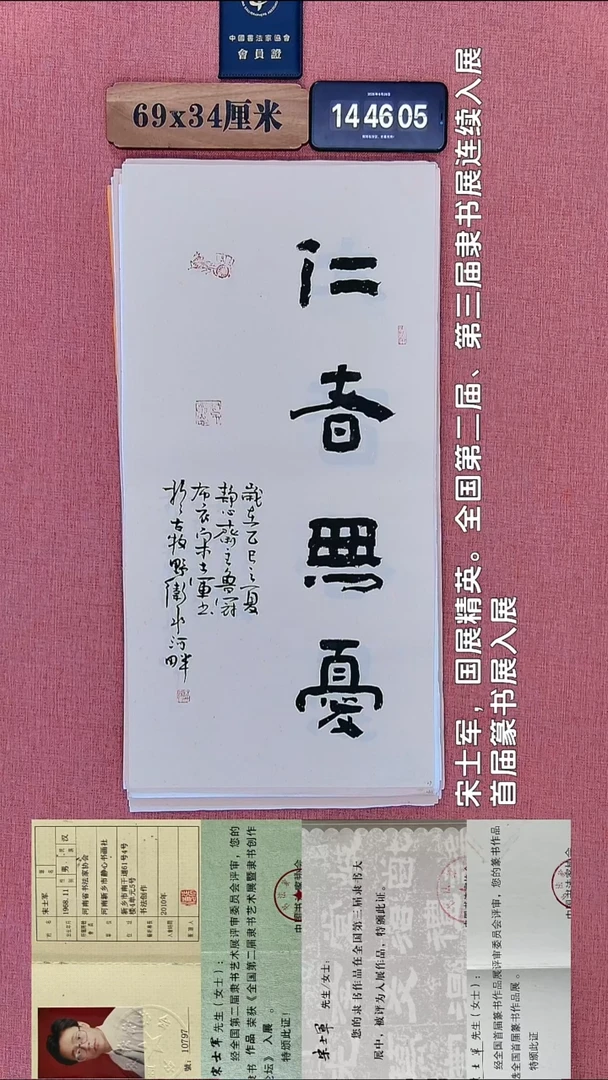 中國書法家協會
會員證
69x34厘米
14 46 05
仁者無憂
歲在乙巳之夏
静心齋主
布衣宋士軍书
於古牧野衛水河畔
宋士军，国展精英。全国第二届、第三届隶书展连续入展
首届篆书展入展
宋士军
男
汉
1968.11
河南省书法家协会
河南新乡市静心书画社
新乡市南干道61号4号
楼3单元5号
书法创作
2010年
號: 10797
宋士军 先生（女士）：
经全国第二届隶书艺术展评审委员会评审，您的
隶书 作品 荣获《全国第二届隶书艺术展暨隶书创作
论坛》 入展 。
特颁此证！
宋士军 先生/女士：
您的隶书作品在全国第三届隶书大
展中，被评为入展作品，特颁此证。
士军 先生（女士）：
经全国首届篆书作品展评审委员会评审，您的篆书作品
选全国首届篆书作品展 。
特颁此证